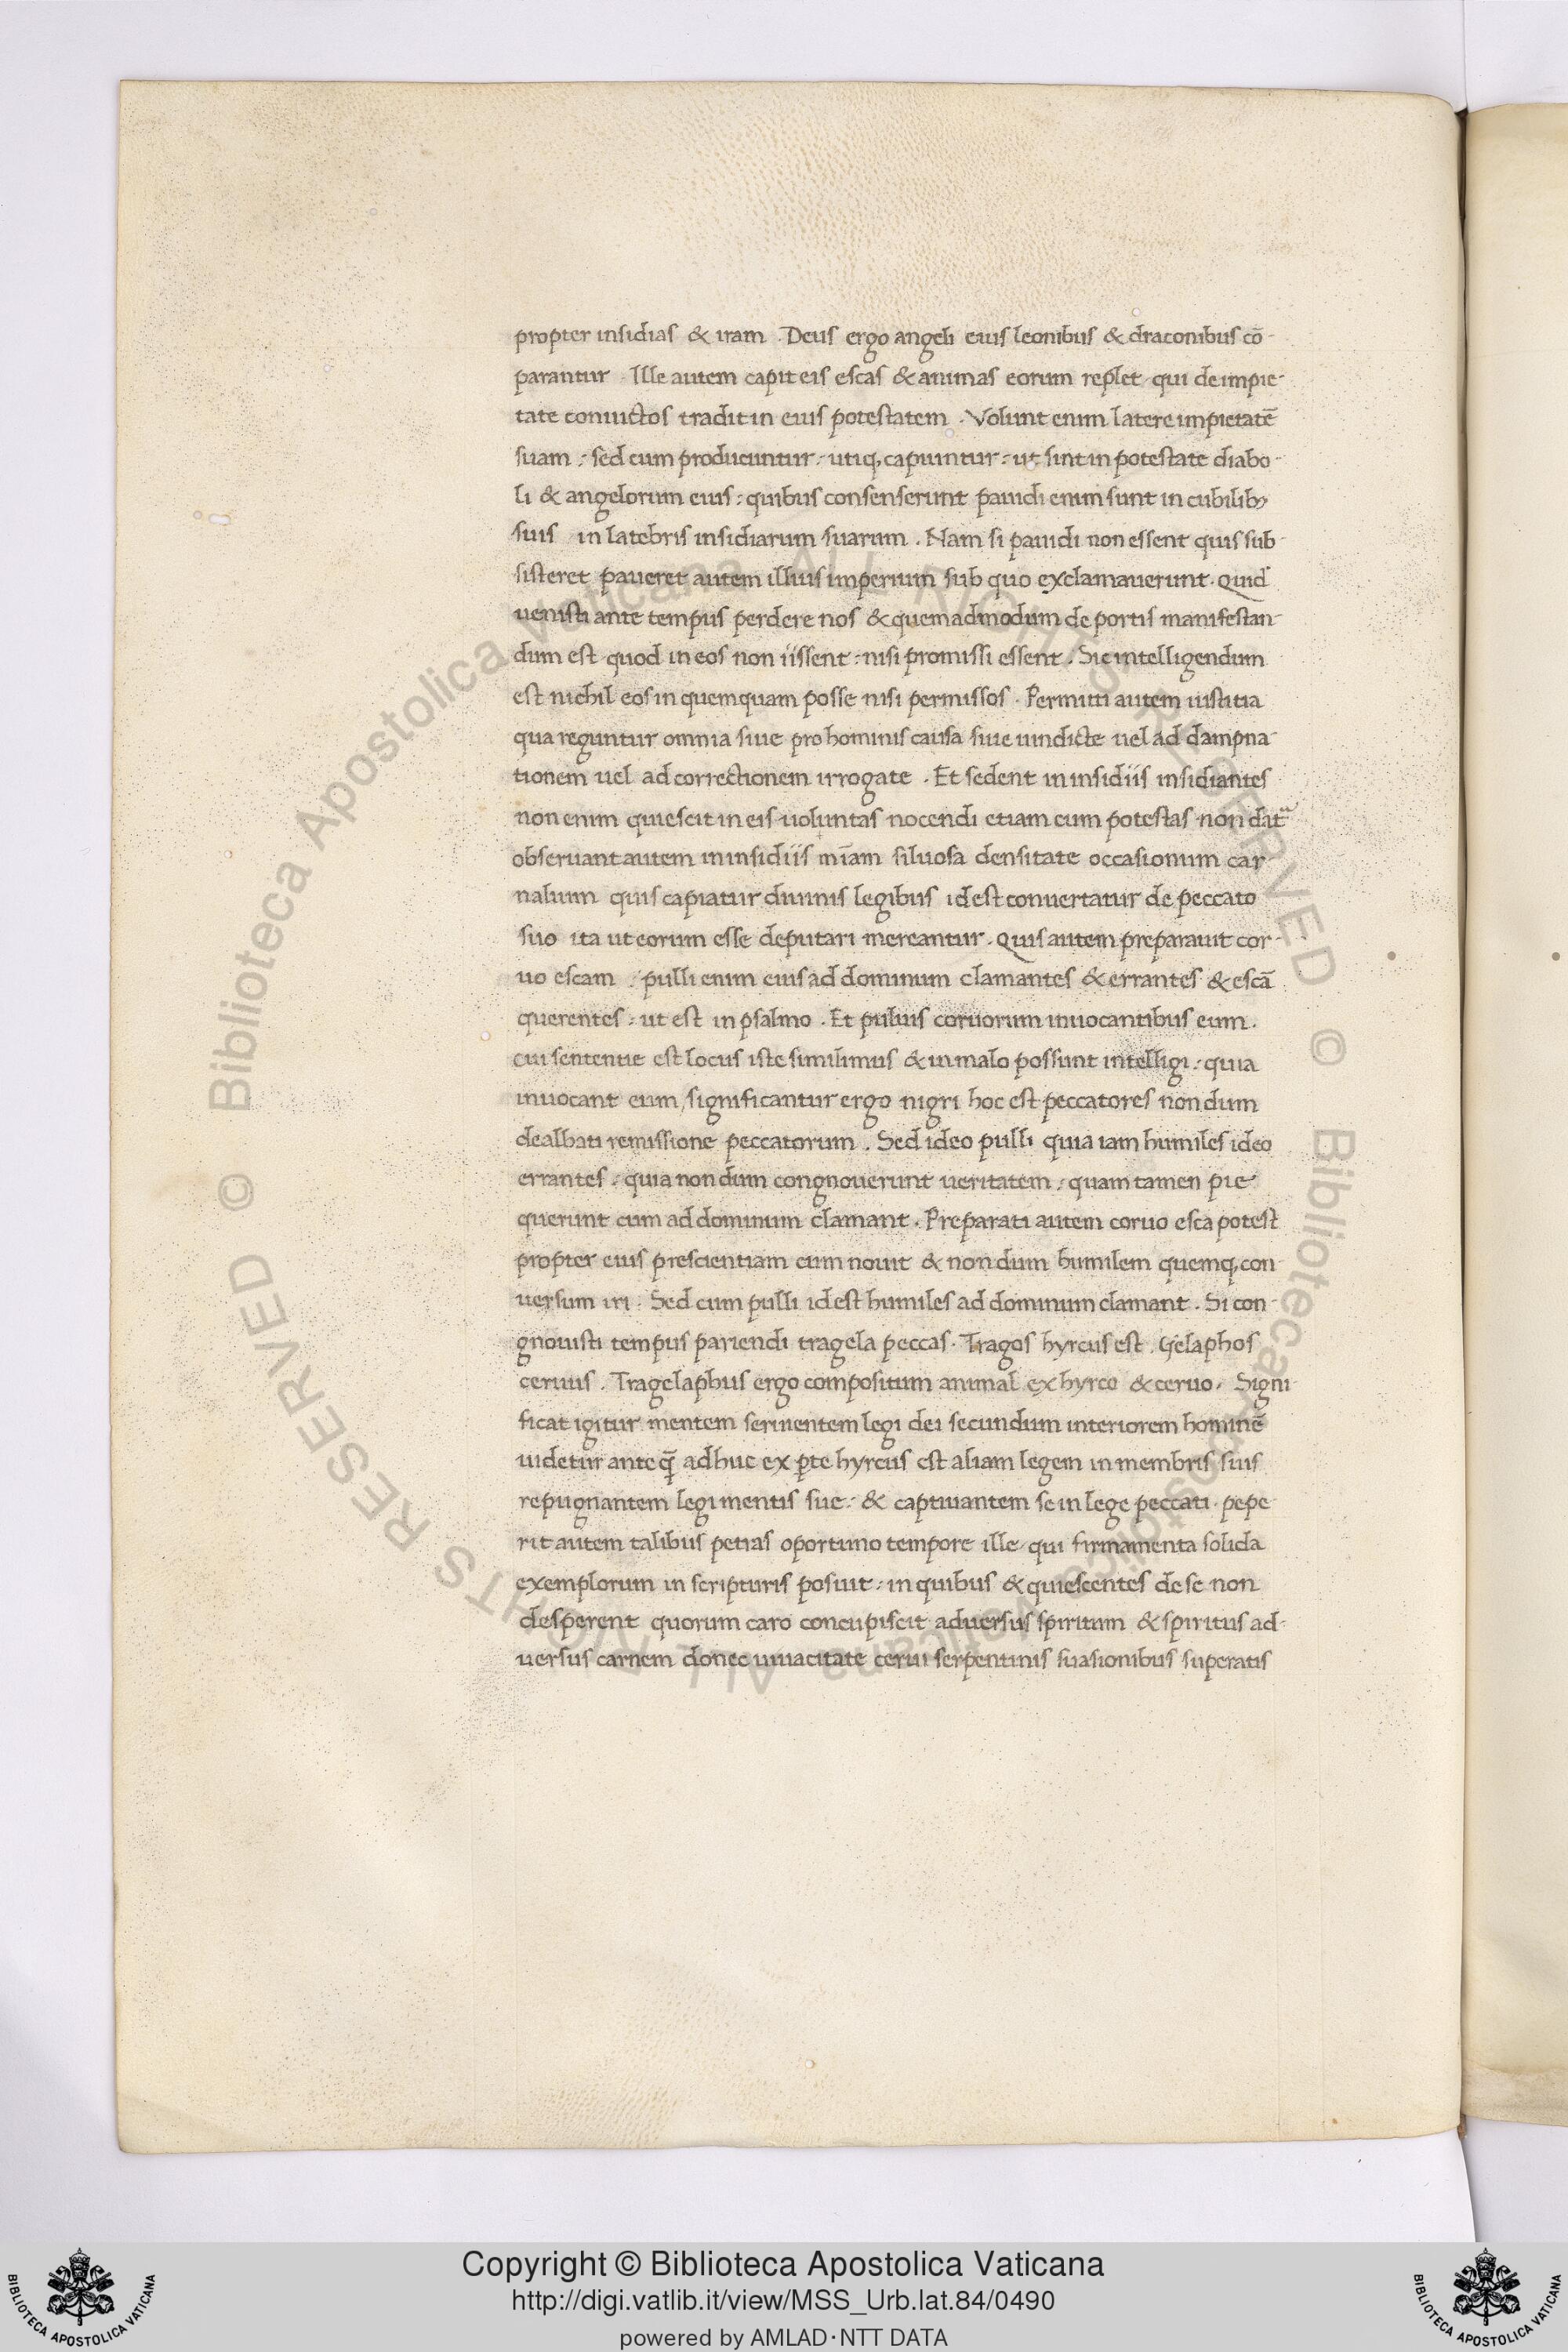 propter insidias & iram . Deus ergo angeli eius leonibus & draconibus cō-
parantur . Ille autem capit eis escas & animas eorum replet qui de impie-
tate conuictos tradit in eius potestatem . Volunt enim latere impietatē
suam : sed cum producuntur : utiq, capiuntur : ut sint in potestate diabo-
li & angelorum eius : quibus consenserunt pauidi enim sunt in cubilibꝫ
suis / in latebris insidiarum suarum . Nam si pauidi non essent quis sub-
sisteret paueret autem illius imperium sub quo exclamauerunt . Quid
uenisti ante tempus perdere nos & quemadmodum de portis manifestan-
dum est quod in eos non iissent : nisi promissi essent . Sic intelligendum
est nichil eos in quemquam posse nisi permissos . Permitti autem iustitia
qua reguntur omnia siue pro hominis causa siue uindicte uel ad dampna-
tionem uel ad correctionem irrogate . Et sedent in insidiis insidiantes
non enim quiescit in eis uoluntas nocendi etiam cum potestas non dat
obseruant autem in insidiis mīam siluosa densitate occasionum car-
nalium quis capiatur diuinis legibus id est conuertatur de peccato
suo ita ut eorum esse deputari mereantur . Quis autem preparauit cor-
uo escam : pulli enim eius ad dominum clamantes & errantes & escā
querentes : ut est in psalmo . Et puluis coruorum inuocantibus eum .
cui sententie est locus iste similimus & in malo possunt intelligi : quia
inuocant eum / significantur ergo nigri hoc est peccatores nondum
dealbati remissione peccatorum . Sed ideo pulli quia iam humiles ideo
errantes : quia non dum congnouerunt ueritatem : quam tamen pie
querunt cum ad dominum clamant . Preparati autem coruo esca potest
propter eius prescientiam cum nouit & non dum humilem quemq, con-
uersum iri . Sed cum pulli id est humiles ad dominum clamant . Si con-
gnouisti tempus pariendi tragela peccas . Tragos hyrcus est . Gelaphos
ceruus . Tragelaphus ergo compositum animal ex hyrco & ceruo . Signi-
ficat igitur mentem seruientem legi dei secundum interiorem hominē
uidetur ante q̄ adhuc ex ꝑte hyrcus est aliam legem in membris suis
repugnantem legi mentis sue : & captiuantem se in lege peccati . pepe-
rit autem talibus petras oportuno tempore ille qui firmamenta solida
exemplorum in scripturis posuit : in quibus & quiescentes de se non
desperent quorum caro concupiscit aduersus spiritum & spiritus ad-
uersus carnem donec uiuacitate cerui serpentinis suasionibus superatis
© Biblioteca Apostolica Vaticana ALL RIGHTS RESERVED © Biblioteca Apostolica Vaticana ALL RIGHTS RESERVED
BIBLIOTECA APOSTOLICA VATICANA
Copyright © Biblioteca Apostolica Vaticana
http://digi.vatlib.it/view/MSS_Urb.lat.84/0490
powered by AMLAD·NTT DATA
BIBLIOTECA APOSTOLICA VATICANA